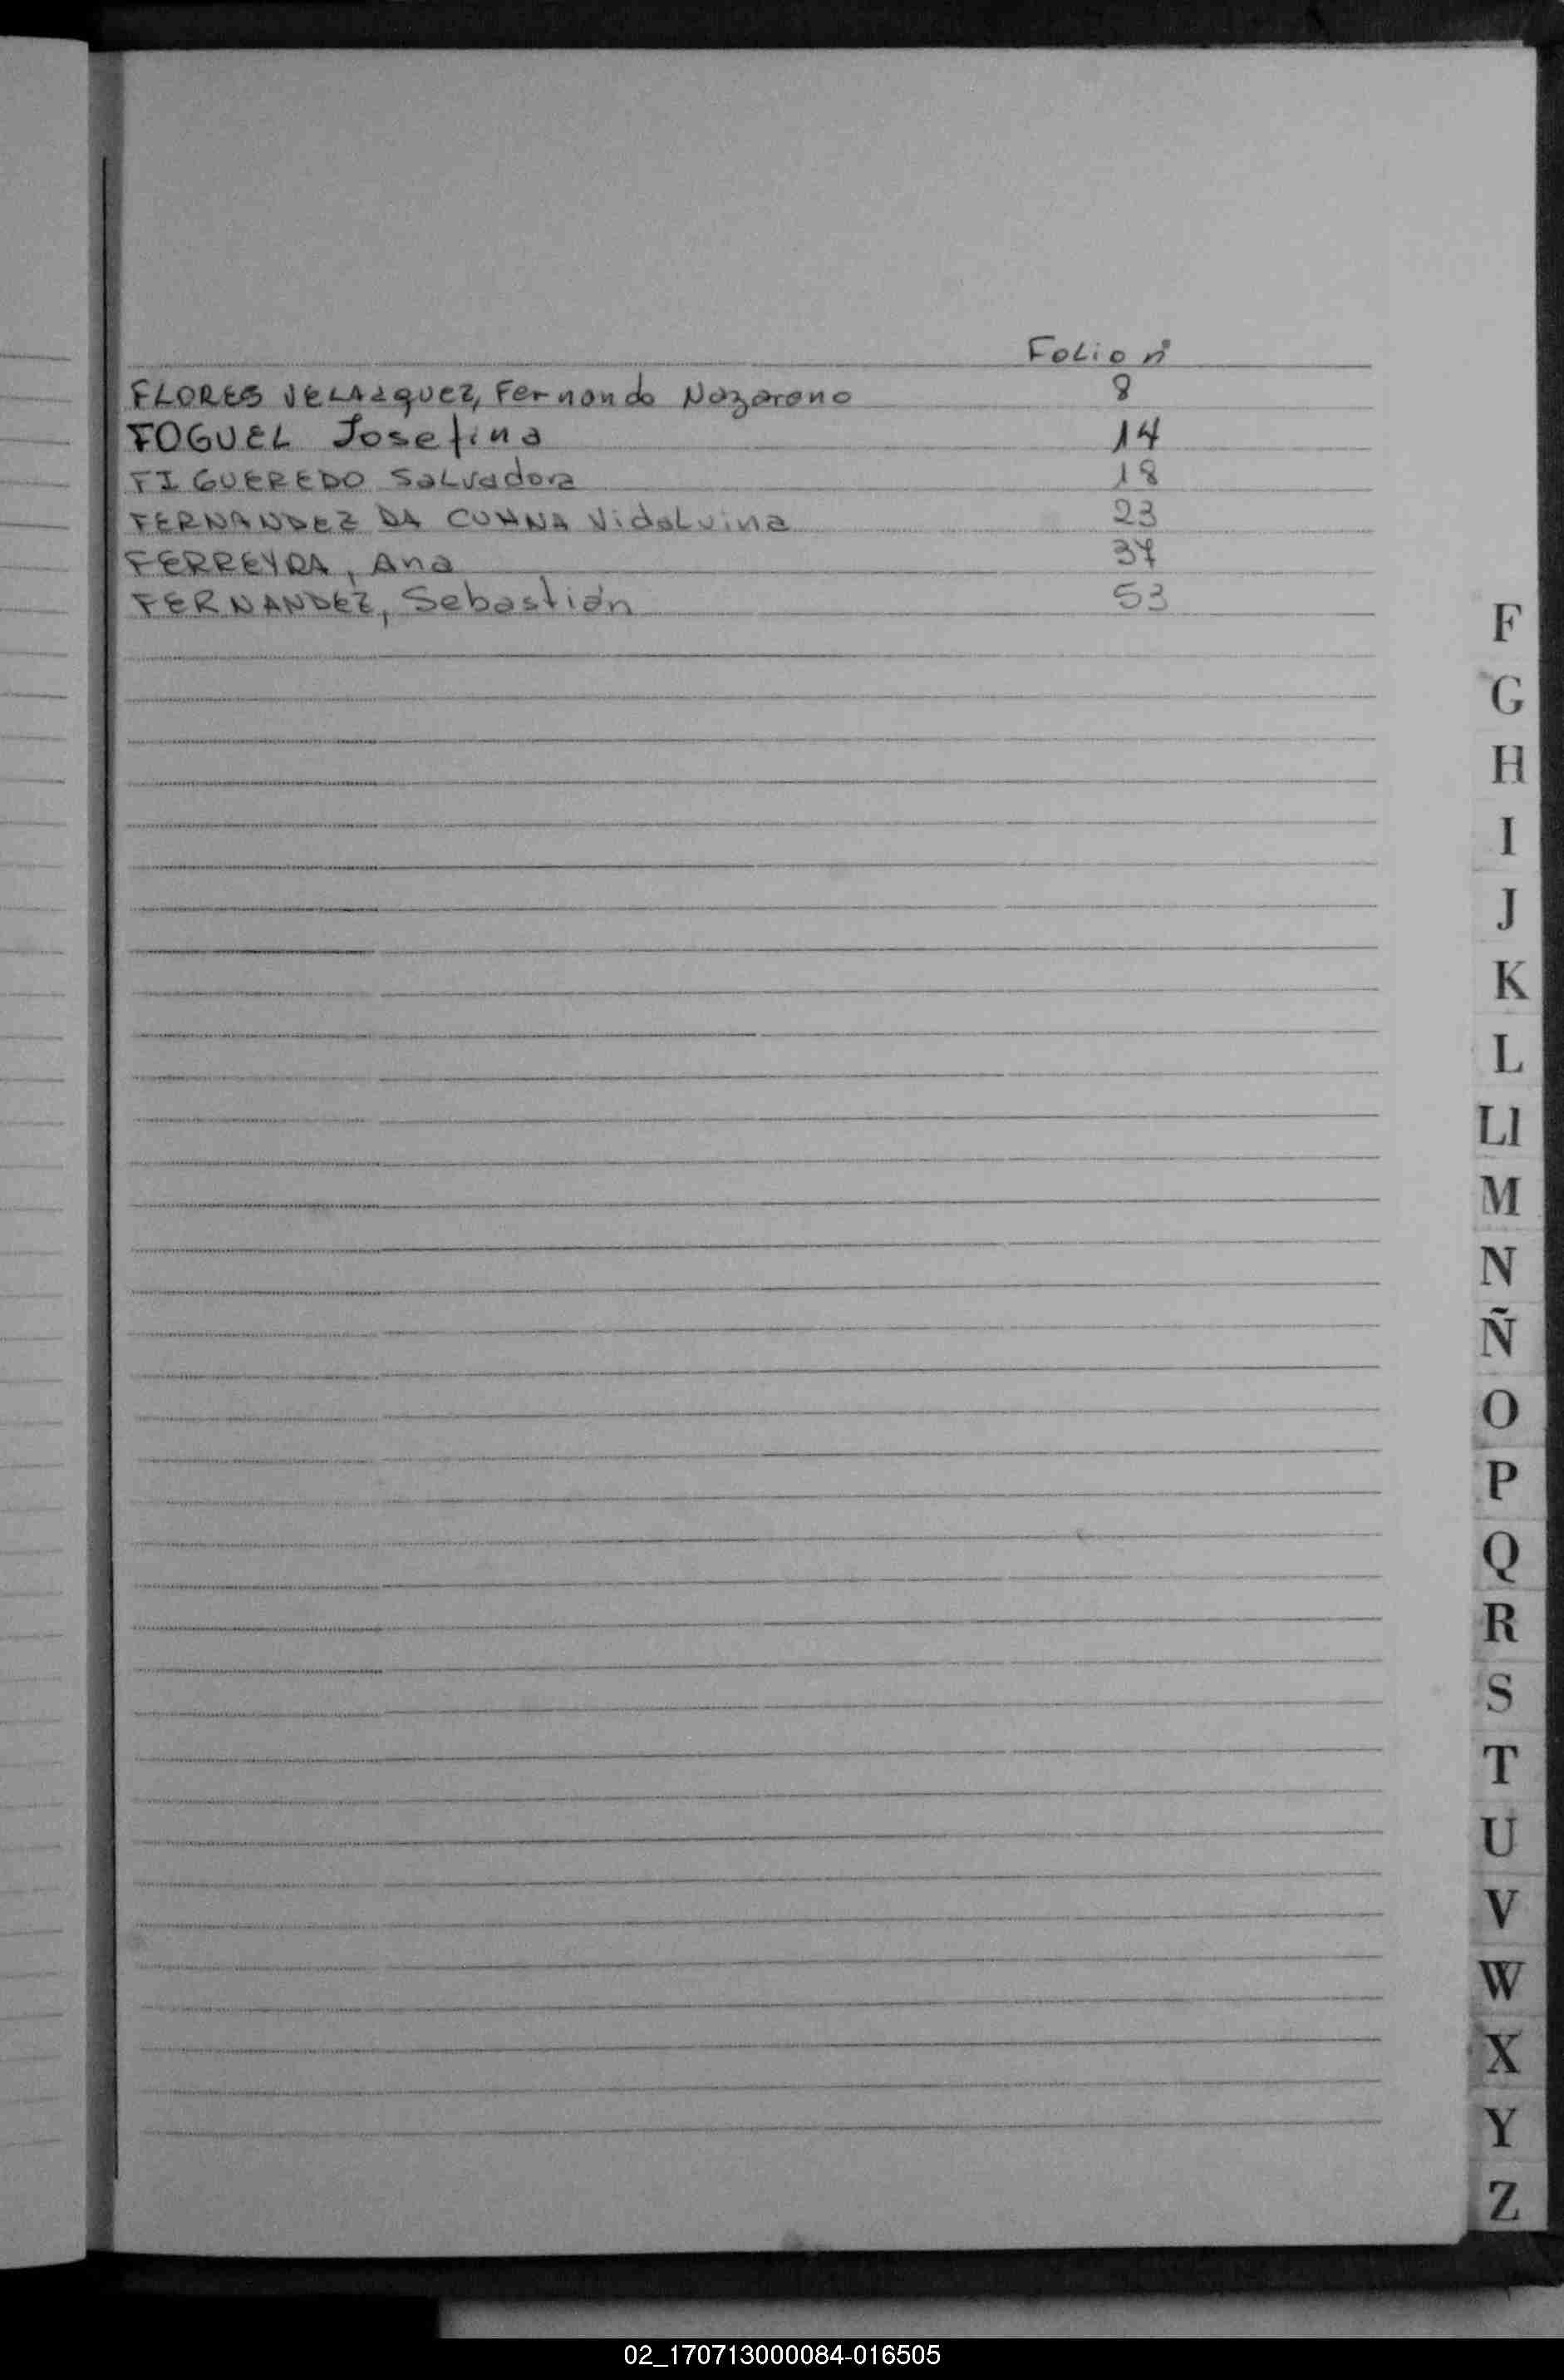 Folio nº
FLORES VELAZQUEZ, Fernando Nazareno 8
FOGUEL Josefina 14
FIGUEREDO Salvadora 18
FERNANDEZ DA CUHNA Vidalvina 23
FERREYRA, Ana 37
FERNANDEZ, Sebastián 53
F
G
H
I
J
K
L
Ll
M
N
Ñ
O
P
Q
R
S
T
U
V
W
X
Y
Z
02_170713000084-016505